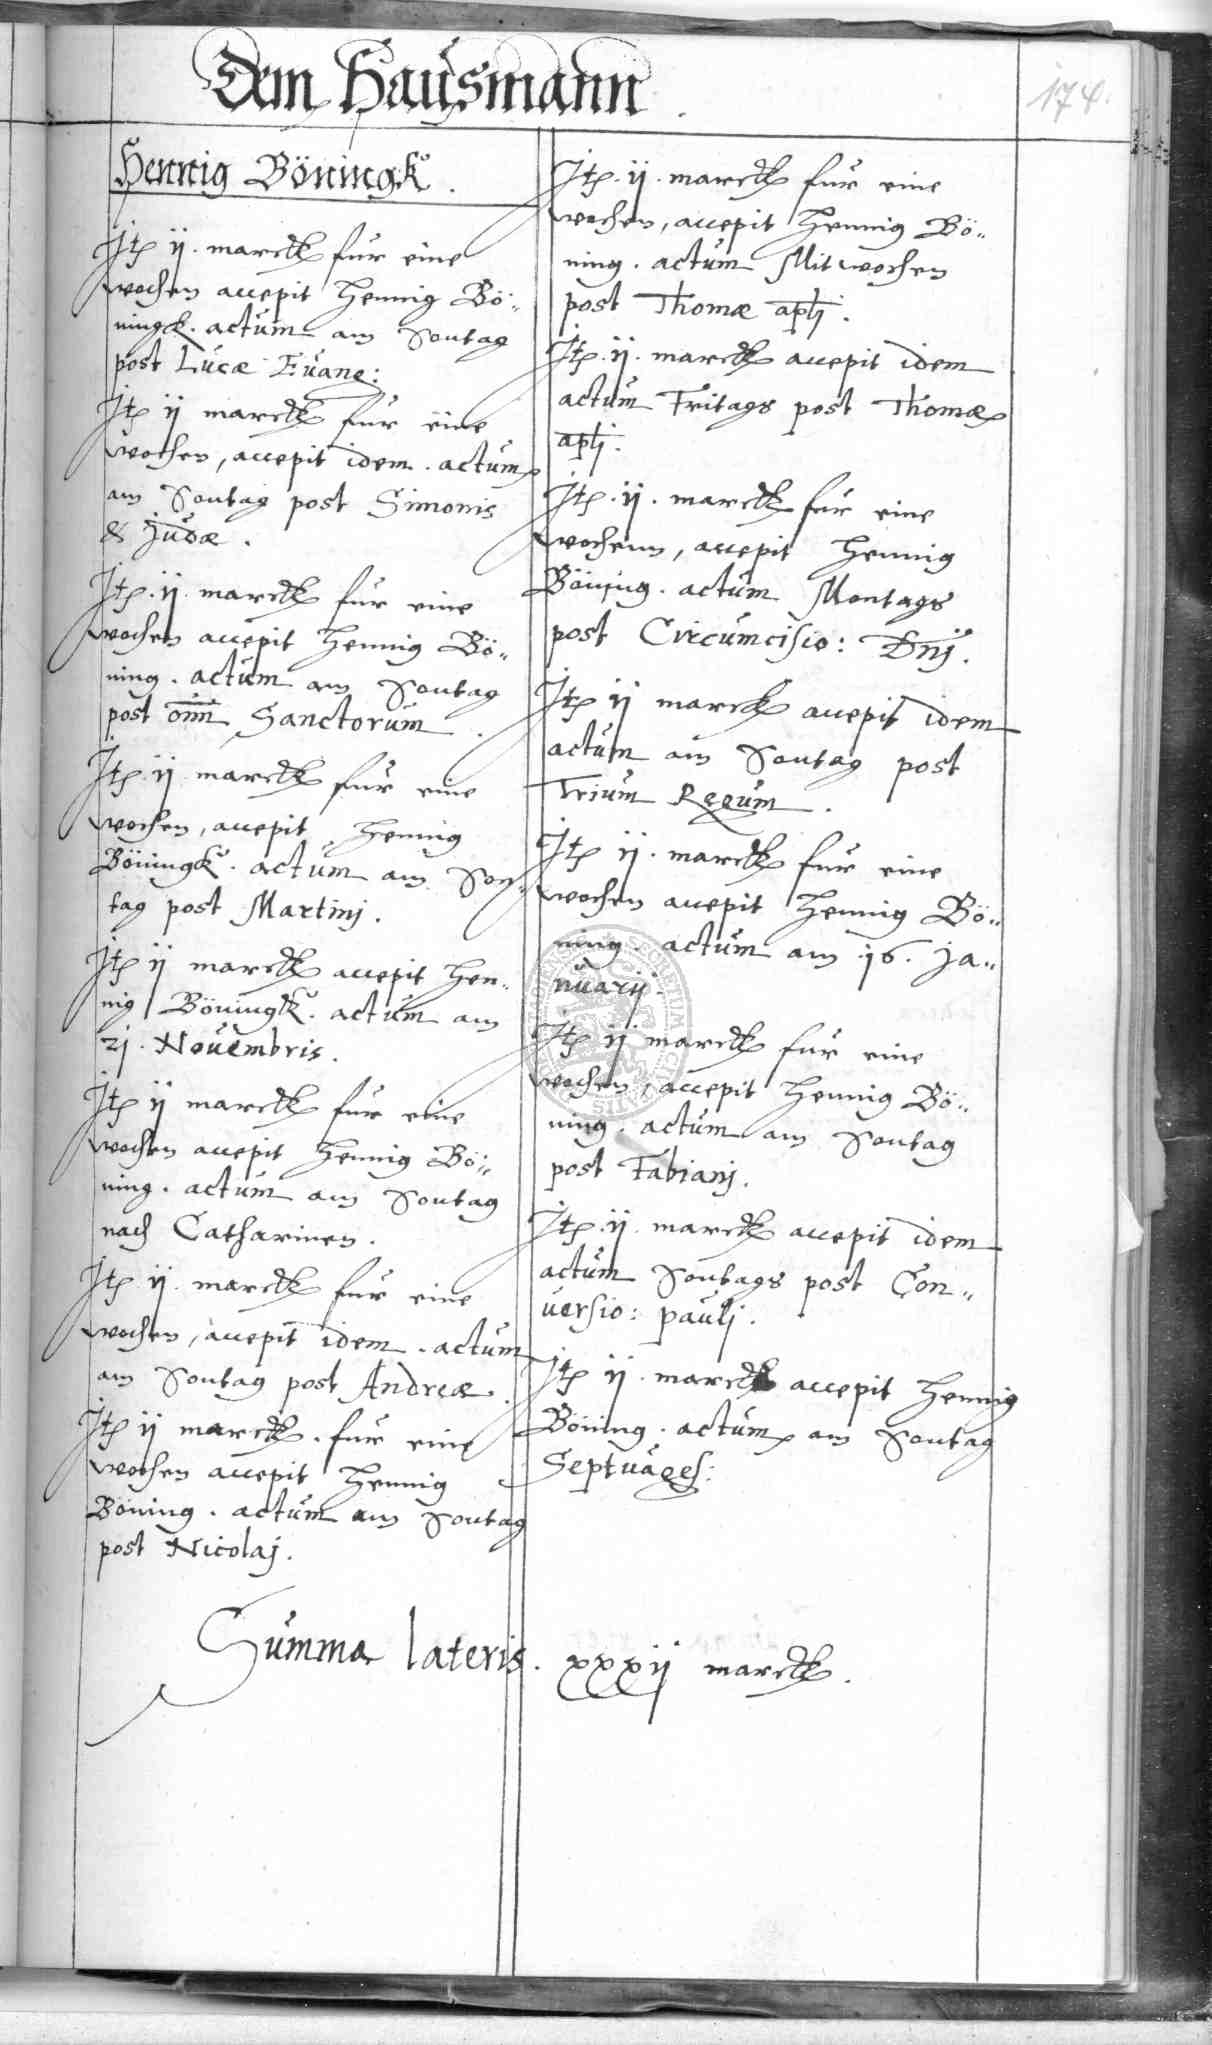 Dem Hausmann
174.
Hennig Böningk.
Jtp ij. marckk fur eine
wochen accepit Hennig Bö„
ningk. actum am Sontag
post Lucæ Evang:
Jtp ij marckk fur eine
wochen, accepit idem. actum
am Sontag post Simonis
& Judæ.
Jtp. ij. marckk fur eine
wochen accepit Hennig Bö„
ning. actum am Sontag
post oīm Sanctorum.
Jtp. ij. marckk fur eine
wochen, accepit Hennig
Böningk. actum am Son„
tag post Martinj.
Jtp ij marckk accepit Hen„
nig Böningk. actum am
2j. Novembris.
Jtp ij marckk fur eine
wochen accepit Hennig Bö„
ning. actum am Sontag
nach Catharinen.
Jtp. ij. marckk fur eine
wochen, accepit idem. actum
am Sontag post Andreæ.
Jtp ij marckk. fur eine
wochen accepit Hennig
Böning. actum am Sontag
post Nicolaj.
Jtp. ij. marckk fur eine
wochen, accepit Hennig Bö„
ning. actum Mitwochen
post Thomæ apli.
Jtp. ij. marckk accepit idem
actum Fritags post Thomæ
apli.
Jtp. ij. marckk fur eine
wochenn, accepit Hennig
Böning. actum Montags
post Circumcisio: Dnj.
Jtp ij marck accepit idem
actum am Sontag post
Trium Regum.
Jtp ij. marckk fur eine
wochen accepit Hennig Bö„
ning. actum am .j6. Ja„
nuarij.
Jtp ij marckk fur eine
wochen, accepit Hennig Bö„
ning. actum am Sontag
post Fabianj.
Jtp. ij. marckk accepit idem
actum Sontags post Con„
versio: paulj.
Jtp ij. marckk accepit Hennig
Böning. actum am Sontag
Septuages:
Summa lateris. xxxij marckk.